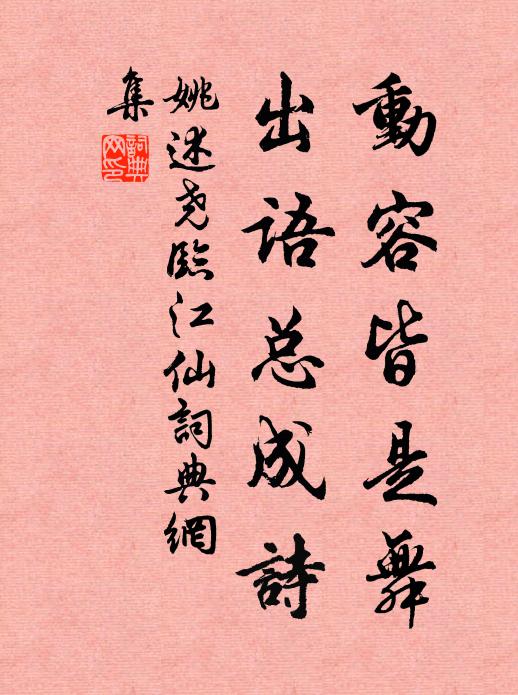 動容皆是舞
出語总成詩
姚述尧臨江仙詞典網
集
詞典
网印